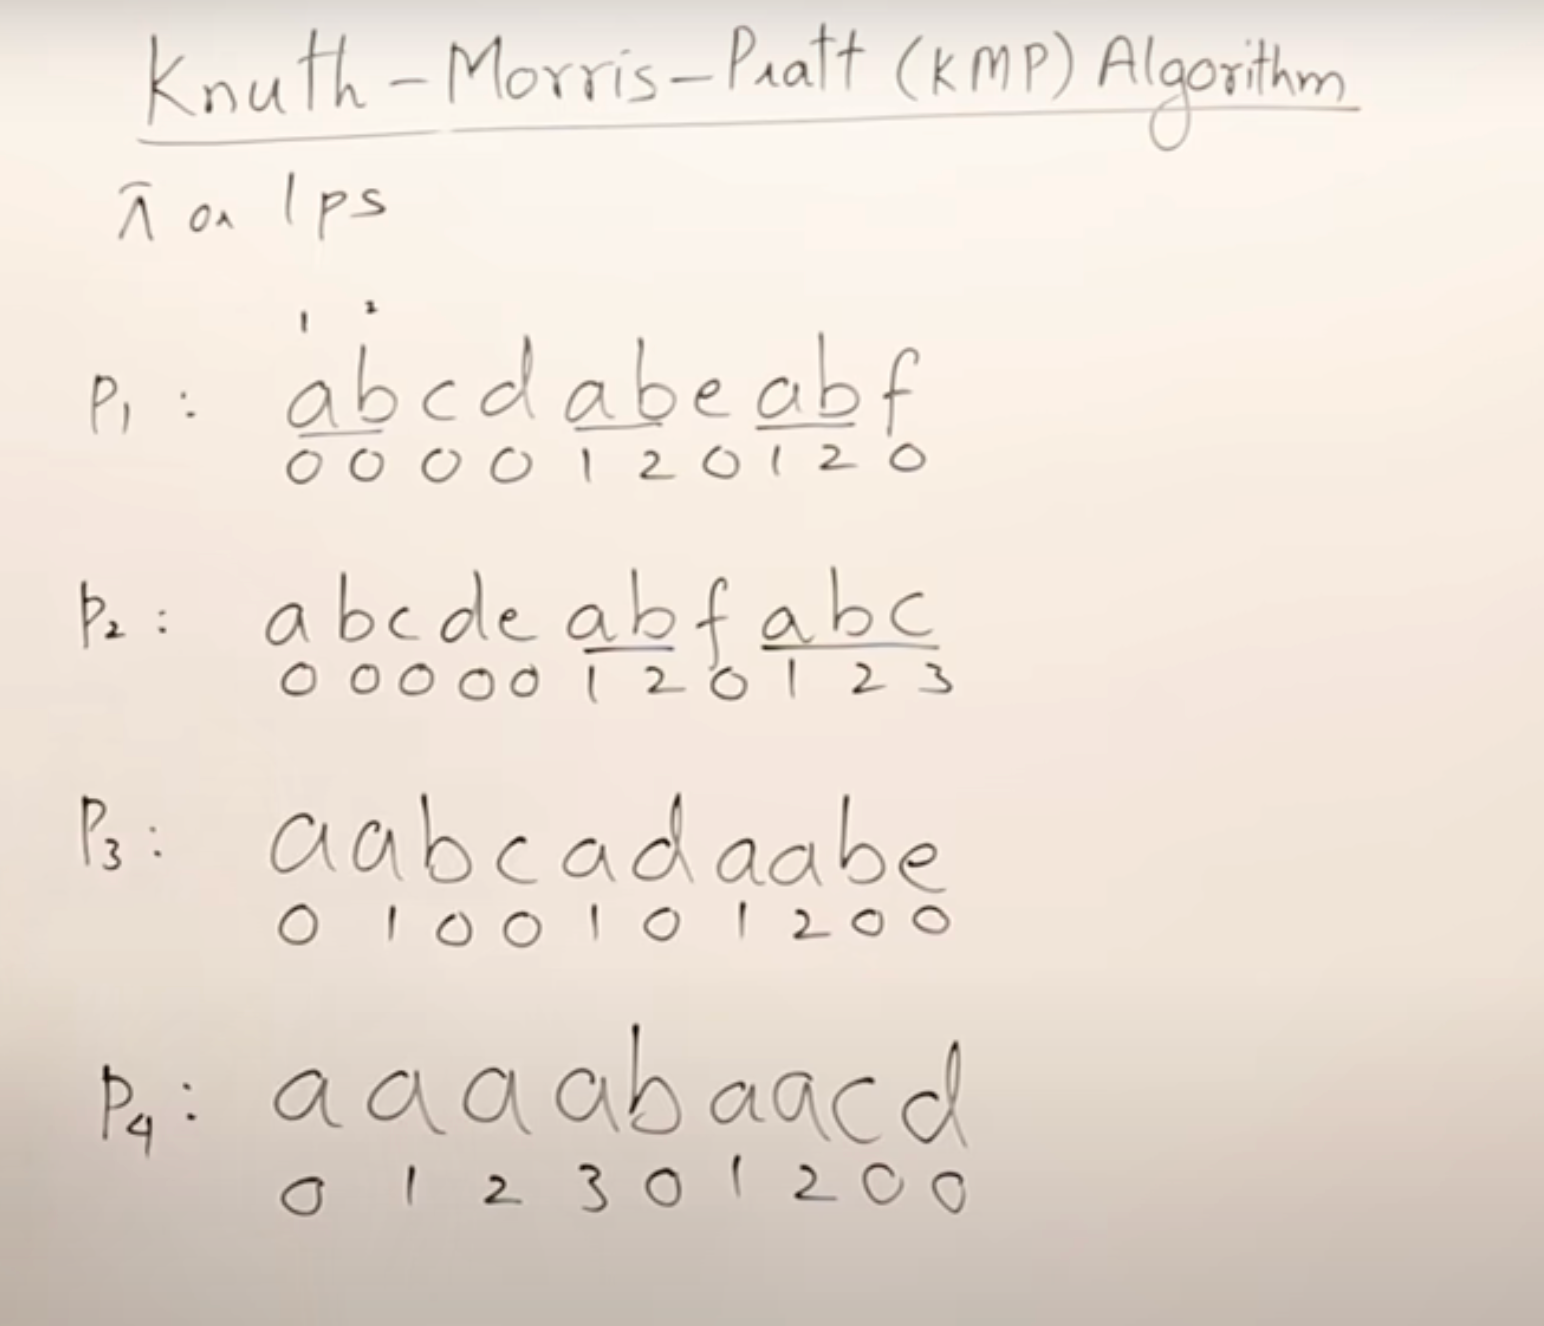 Knuth-Morris-Pratt (KMP) Algorithm
π or lps
1 2
P1: abcdabeabf
0 0 0 0 1 2 0 1 2 0
P2: abcdeabfabc
0 0 0 0 0 1 2 0 1 2 3
P3: aabcadaabe
0 1 0 0 1 0 1 2 0 0
P4: aaaabaacd
0 1 2 3 0 1 2 0 0